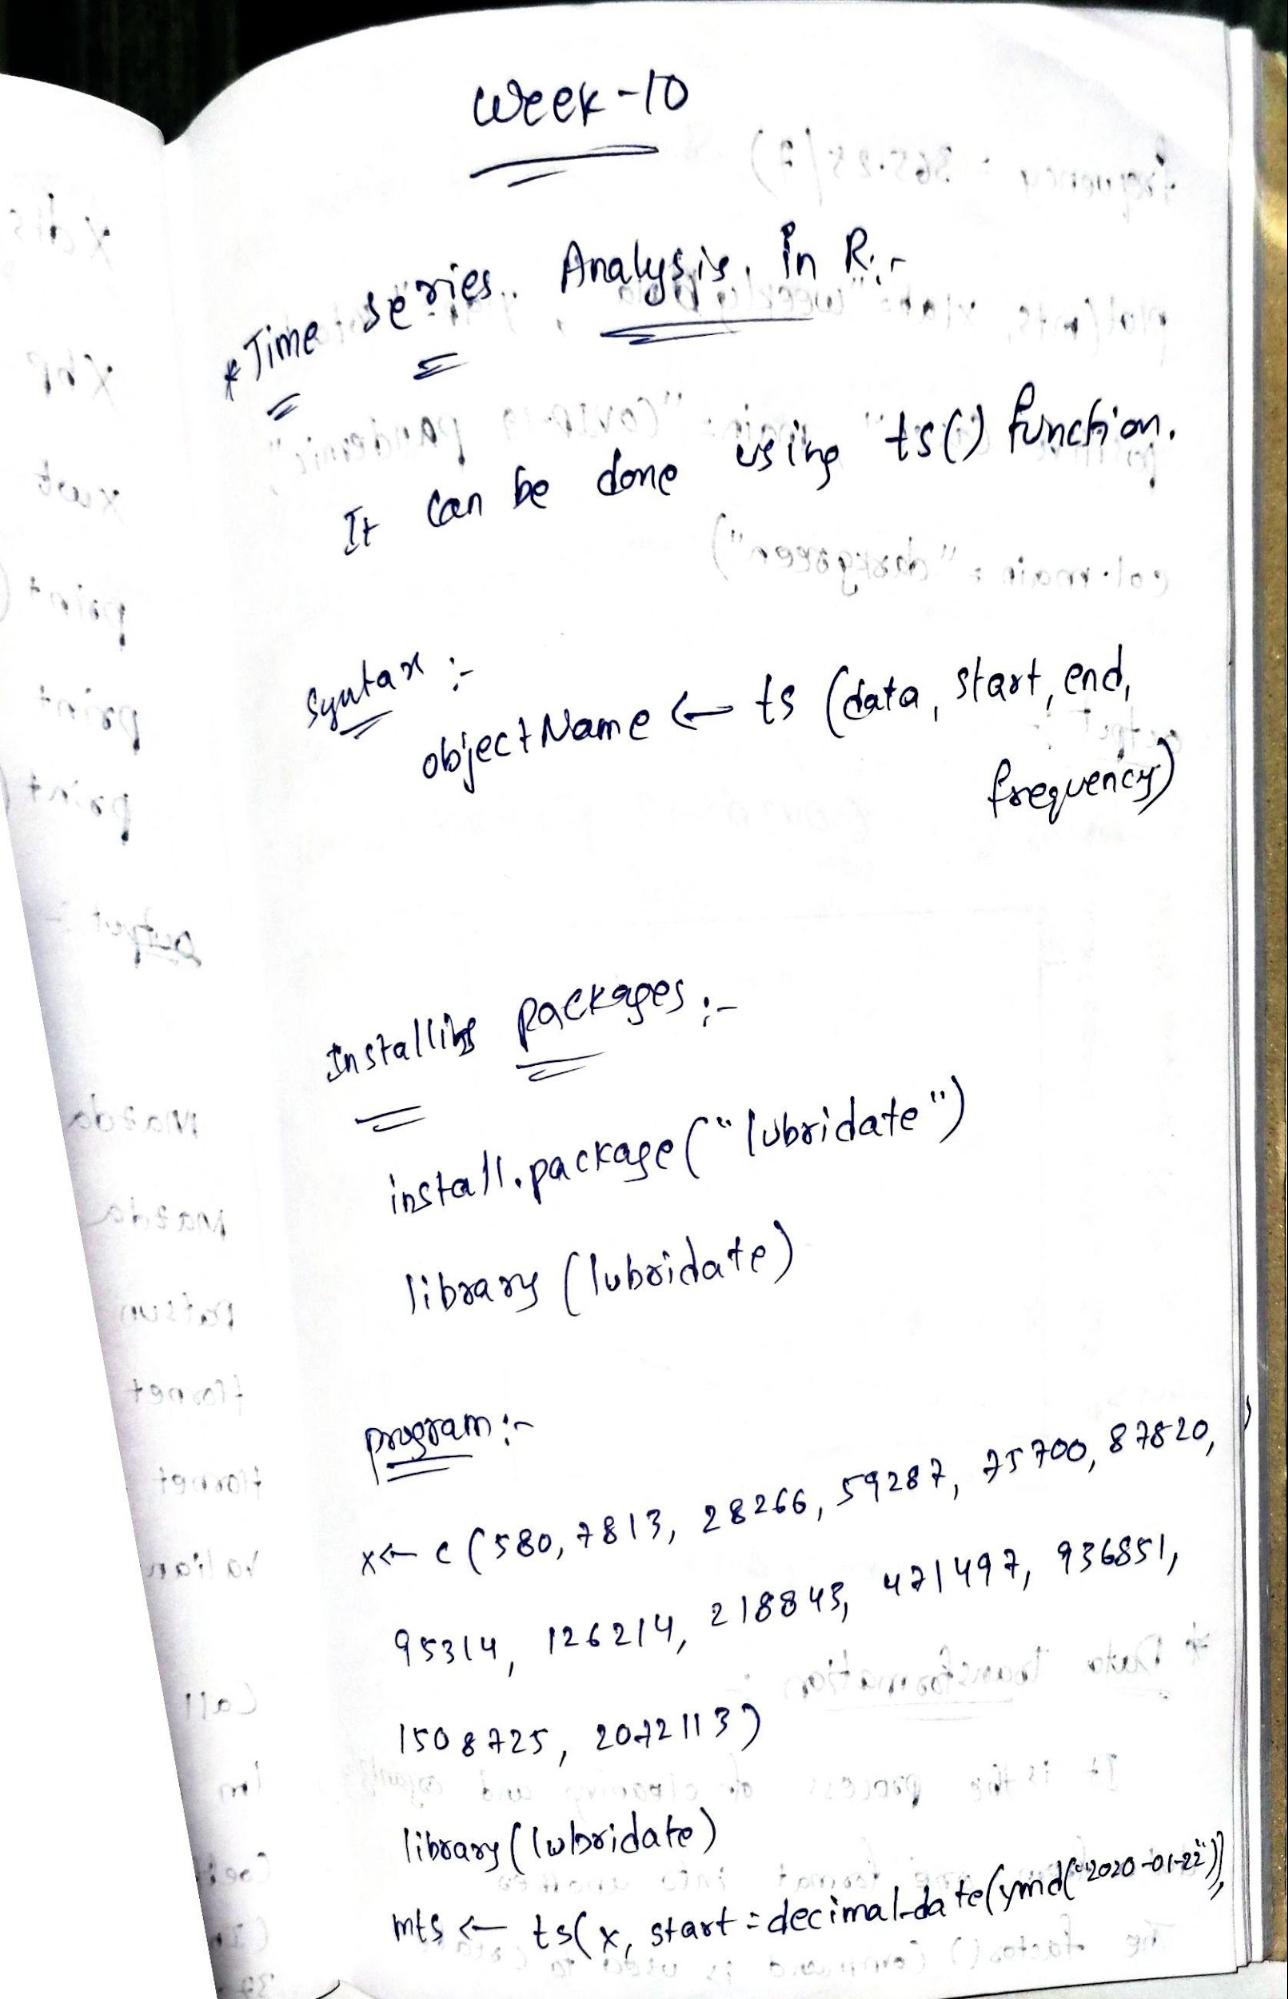 Week-10
*Time series Analysis in R:-
It can be done using ts() function.
Syntax :-
objectName <- ts (data, start, end,
frequency)
Installing packages :-
install.package("lubridate")
library (lubridate)
program :-
x<- c (580, 7813, 28266, 59287, 75700, 87820,
95314, 126214, 218843, 471497, 936851,
1508725, 2072113)
library(lubridate)
mts <- ts(x, start = decimal_date(ymd("2020-01-22")),